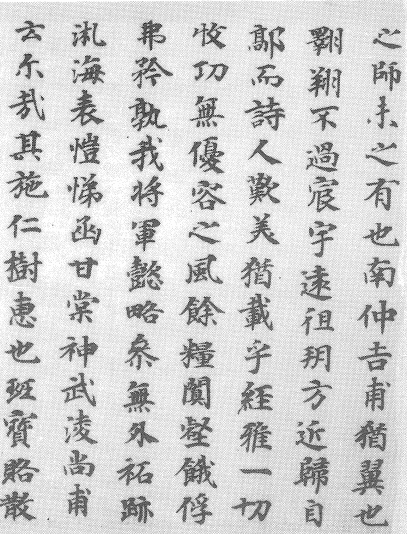 之師未之有也南仲吉甫猶翼也
翱翔不過宸宇遠徂朔方近歸自
鄗而詩人歎美猶載乎經雅一切
忮功無優容之風餘糧闐壑餓俘
弗矜孰我将軍懿略叅無外祏跡
海表愷悌函甘棠神武淩尚甫
云尓哉其施仁樹惠也班寳賂散